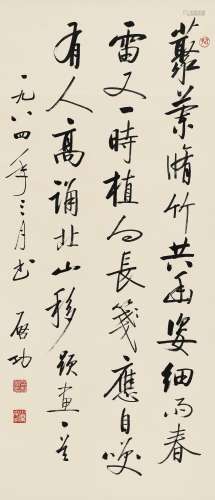 丛兰修竹共幽姿细雨春
雷又一时植向长笺应自笑
有人高诵北山移 题画一首
一九八四年三月书 启功